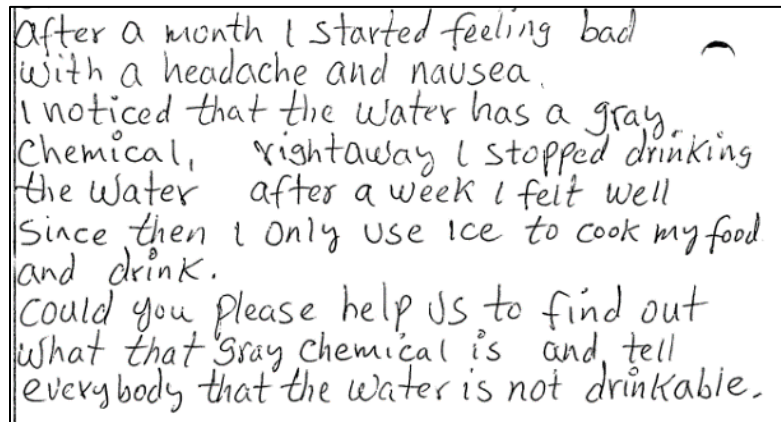 after a month I started feeling bad
with a headache and nausea.
I noticed that the water has a gray
chemical, rightaway I stopped drinking
the water after a week I felt well
Since then I only use Ice to cook my food
and drink.
Could you please help us to find out
what that gray chemical is and tell
everybody that the water is not drinkable.